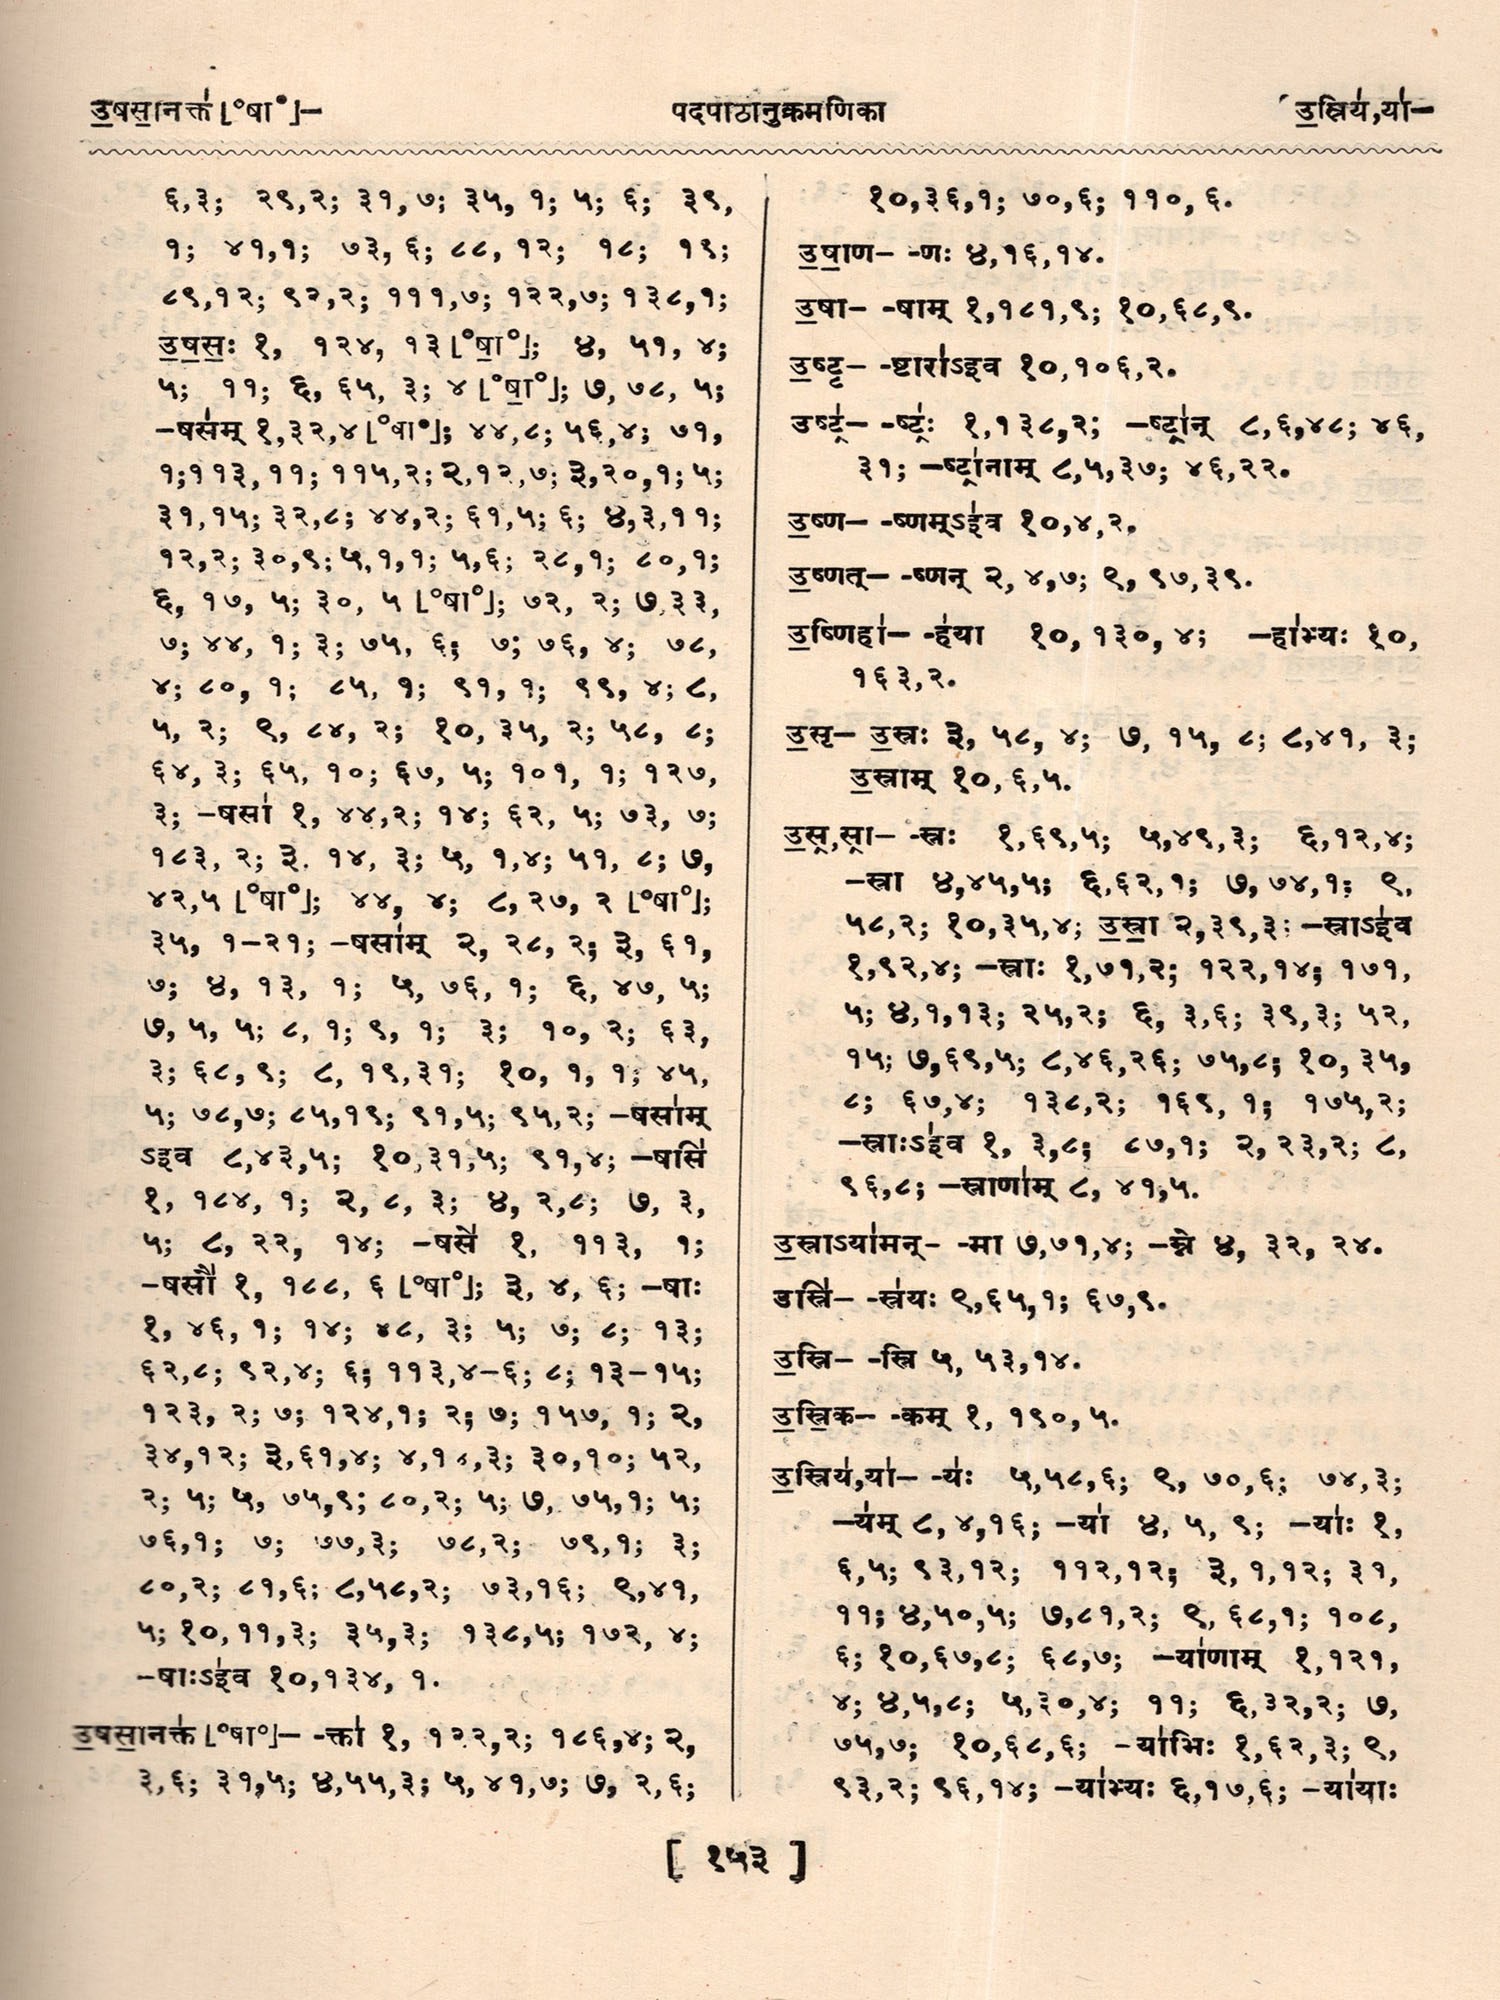 उ॒षसा॒नक्त॑ [°षा°]–
पदपाठानुक्रमणिका
उ॒स्रिय॑,या॑–
६,३; २९,२; ३१,७; ३५, १; ५; ६; ३९,
१; ४१,१; ७३,६; ८८, १२; १८; १९;
८९,१२; ९२,२; १११,७; १२२,७; १३८,१;
उ॒ष॒सः॒ १, १२४, १३ [°षा॒°]; ४, ५१, ४;
५; ११; ६, ६५, ३; ४ [°षा॒°]; ७, ७८, ५;
–षस॑म् १,३२,४ [°षा°]; ४४,८; ५६,४; ७१,
१;११३,११; ११५,२; २,१२,७; ३,२०,१; ५;
३१,१५; ३२,८; ४४,२; ६१,५; ६; ४,३,११;
१२,२; ३०,९; ५,१,१; ५,६; २८,१; ८०,१;
६, १७, ५; ३०, ५ [°षा°]; ७२, २; ७,३३,
७; ४४, १; ३; ७५, ६; ७; ७६, ४; ७८,
४; ८०, १; ८५, १; ९१, १; ९९, ४; ८,
५, २; ९, ८४, २; १०, ३५, २; ५८, ८;
६४, ३; ६५, १०; ६७, ५; १०१, १; १२७,
३; –षसा॑ १, ४४,२; १४; ६२, ५; ७३, ७;
१८३, २; ३. १४, ३; ५, १,४; ५१, ८; ७,
४२,५ [°षा°]; ४४, ४; ८,२७, २ [°षा°];
३५, १–२१; –षसा॑म् २, २८, २; ३, ६१,
७; ४, १३, १; ५, ७६, १; ६, ४७, ५;
७, ५, ५; ८, १; ९, १; ३; १०, २; ६३,
३; ६८, ९; ८, १९,३१; १०, १, १; ४५,
५; ७८,७; ८५,१९; ९१,५; ९५,२; –षसा॑म्
ऽइव ८,४३,५; १०,३१,५; ९१,४; –षसि॑
१, १८४, १; २, ८, ३; ४, २,८; ७, ३,
५; ८, २२, १४; –षसे॑ १, ११३, १;
–षसौ॑ १, १८८, ६ [°षा°]; ३, ४, ६; –षाः
१, ४६, १; १४; ४८, ३; ५; ७; ८; १३;
६२,८; ९२,४; ६; ११३,४–६; ८; १३–१५;
१२३, २; ७; १२४,१; २; ७; १५७, १; २,
३४,१२; ३,६१,४; ४,१४,३; ३०,१०; ५२,
२; ५; ५, ७५,९; ८०,२; ५; ७, ७५,१; ५;
७६,१; ७; ७७,३; ७८,२; ७९,१; ३;
८०,२; ८१,६; ८,५८,२; ७३,१६; ९,४१,
५; १०,११,३; ३५,३; १३८,५; १७२, ४;
–षाःऽइ॑व १०,१३४, १.
उ॒षसा॒नक्त॑ [°षा°]– -क्ता॑ १, १२२,२; १८६,४; २,
३,६; ३१,५; ४,५५,३; ५,४१,७; ७, २,६;
१०,३६,१; ७०,६; ११०, ६.
उ॒षा॒ण– -णः ४,१६,१४.
उ॒षा– -षाम् १,१८१,९; १०,६८,९.
उ॒ष्टृ– -ष्टारा॑ऽइव १०,१०६,२.
उष्ट्र॑– -ष्ट्रः॑ १,१३८,२; –ष्ट्रा॑न् ८,६,४८; ४६,
३१; –ष्ट्रा॑नाम् ८,५,३७; ४६,२२.
उ॒ष्ण– -ष्णम्ऽइ॑व १०,४,२.
उ॒ष्णत्– -ष्णन् २, ४,७; ९, ९७,३९.
उ॒ष्णिहा॑– -ह॑या १०, १३०, ४; –हा॑भ्यः १०,
१६३,२.
उ॒सृ– उ॒स्रः ३, ५८, ४; ७, १५, ८; ८,४१, ३;
उ॒स्राम् १०,६,५.
उ॒स्र,स्रा– -स्रः १,६९,५; ५,४९,३; ६,१२,४;
–स्रा ४,४५,५; ६,६२,१; ७,७४,१; ९,
५८,२; १०,३५,४; उ॒स्रा॒ २,३९,३; –स्राऽइ॑व
१,९२,४; –स्राः १,७१,२; १२२,१४; १७१,
५; ४,१,१३; २५,२; ६, ३,६; ३९,३; ५२,
१५; ७,६९,५; ८,४६,२६; ७५,८; १०, ३५,
८; ६७,४; १३८,२; १६९, १; १७५,२;
–स्राःऽइ॑व १, ३,८; ८७,१; २, २३,२; ८,
९६,८; –स्राणा॑म् ८, ४१,५.
उ॒स्राऽया॑मन्– -मा ७,७१,४; –म्ने ४, ३२, २४.
उस्रि॑– -स्र॑यः ९,६५,१; ६७,९.
उ॒स्रि– -स्रि ५, ५३,१४.
उ॒स्रि॒क– -कम् १, १९०,५.
उ॒स्रिय॑,या॑– -यः॑ ५,५८,६; ९, ७०,६; ७४,३;
–य॑म् ८, ४,१६; –या॑ ४, ५, ९; –याः॑ १,
६,५; ९३,१२; ११२,१२; ३, १,१२; ३१,
११; ४,५०,५; ७,८१,२; ९, ६८,१; १०८,
६; १०,६७,८; ६८,७; –या॑णाम् १,१२१,
४; ४,५,८; ५,३०,४; ११; ६,३२,२; ७,
७५,७; १०,६८,६; –या॑भिः १,६२,३; ९,
९३,२; ९६,१४; –या॑भ्यः ६,१७,६; –या॑याः
[ १५३ ]